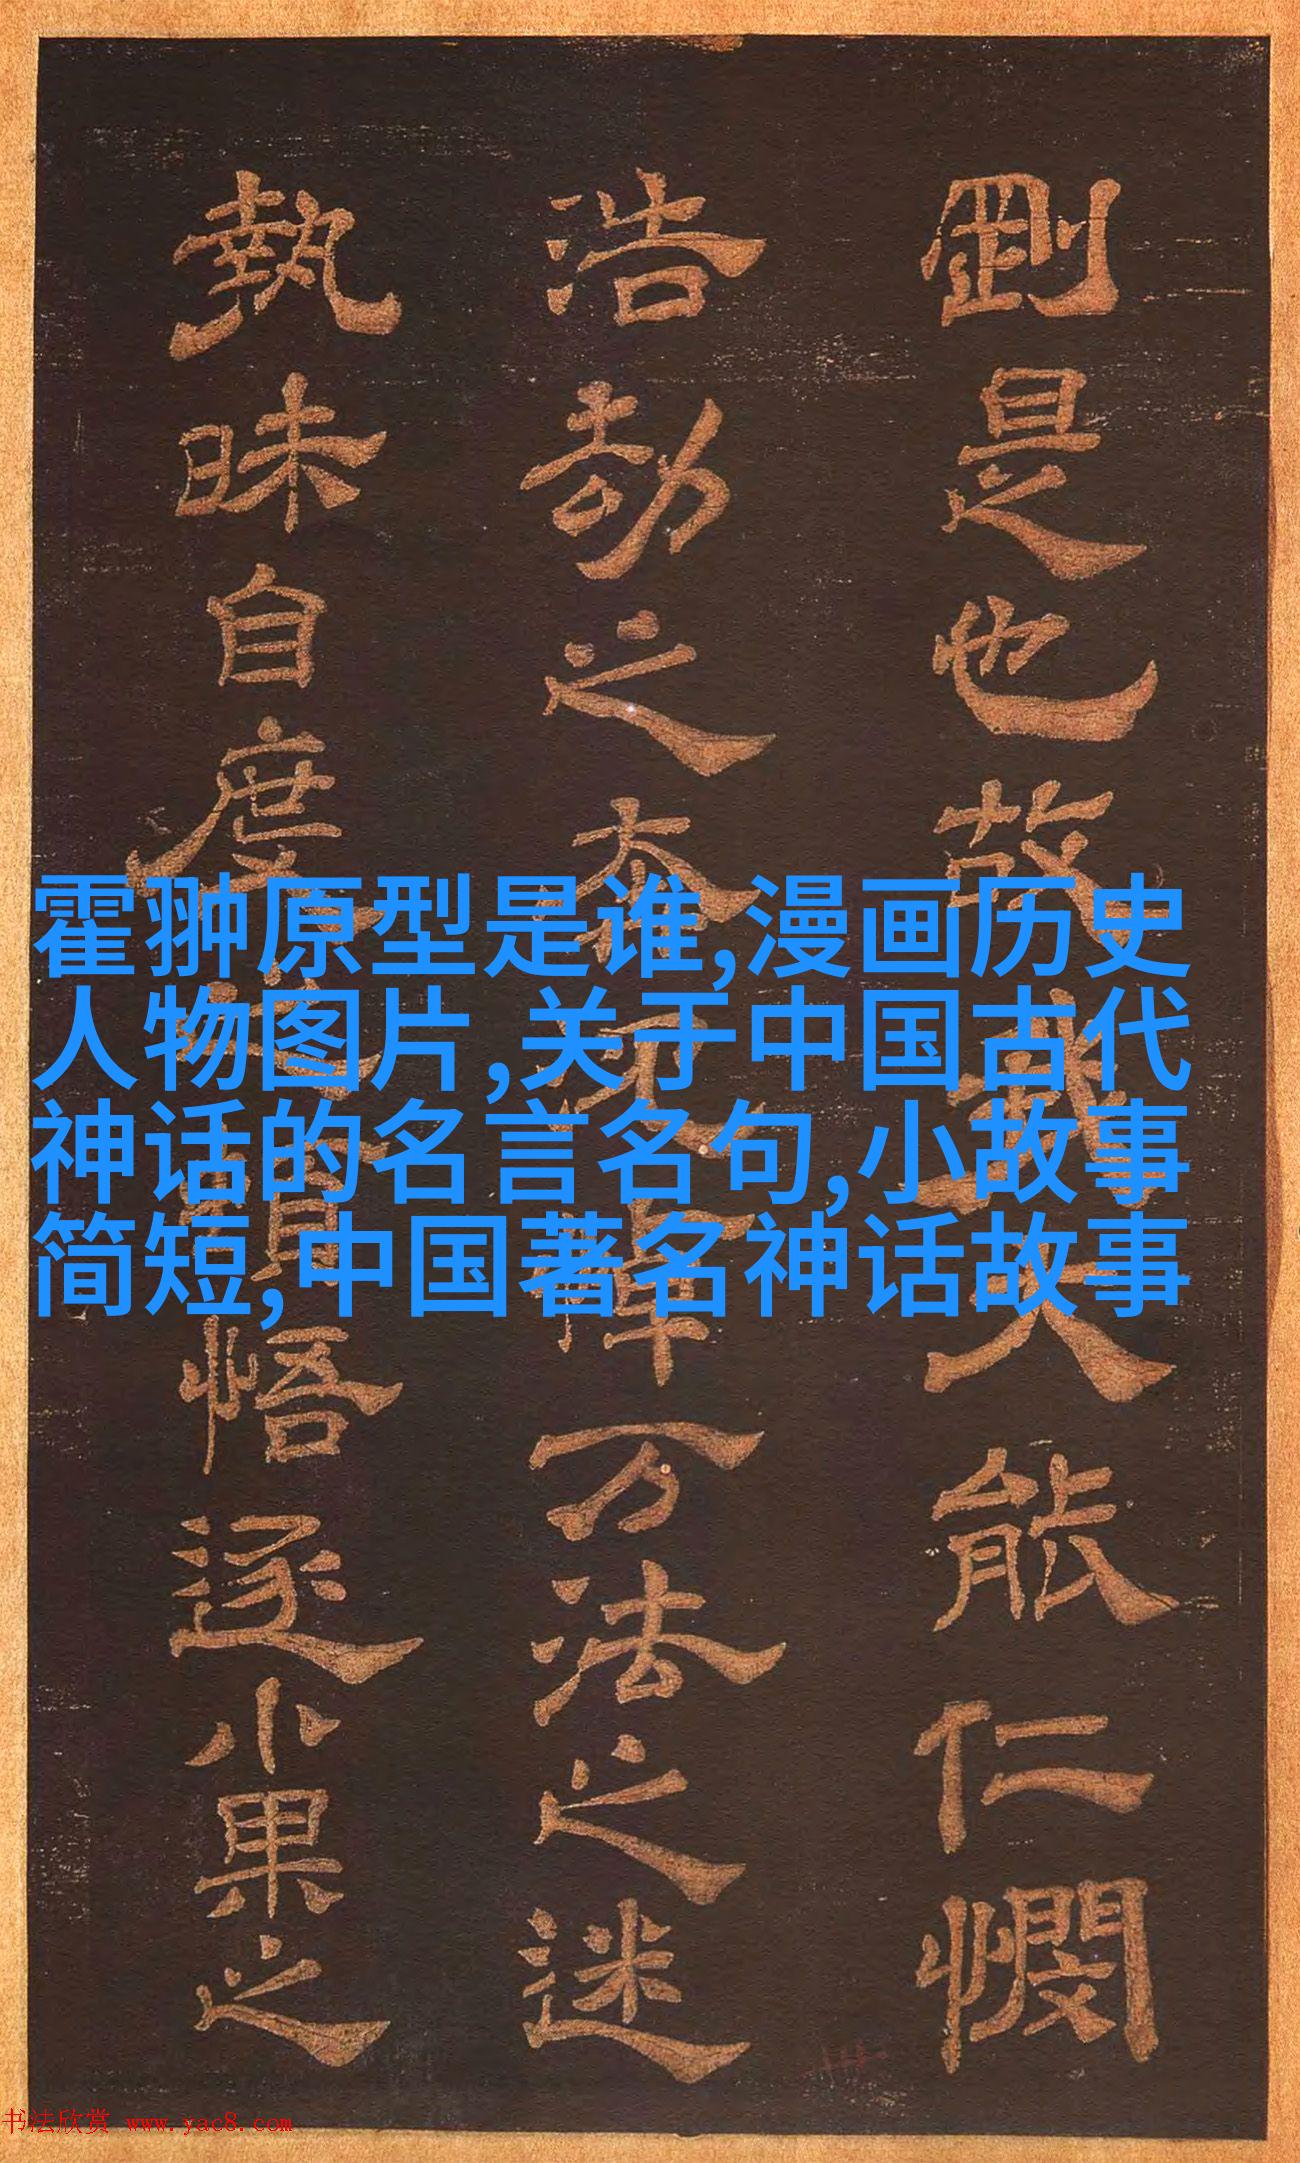 剛是也故我大能仁憫
浩劫之泰
万法之迷
執昧自度
悟逐小果之
霍翀原型是谁,漫画历史
人物图片,关于中国古代
神话的名言名句,小故事
简短,中国著名神话故事
书法欣赏 www.yac8.com